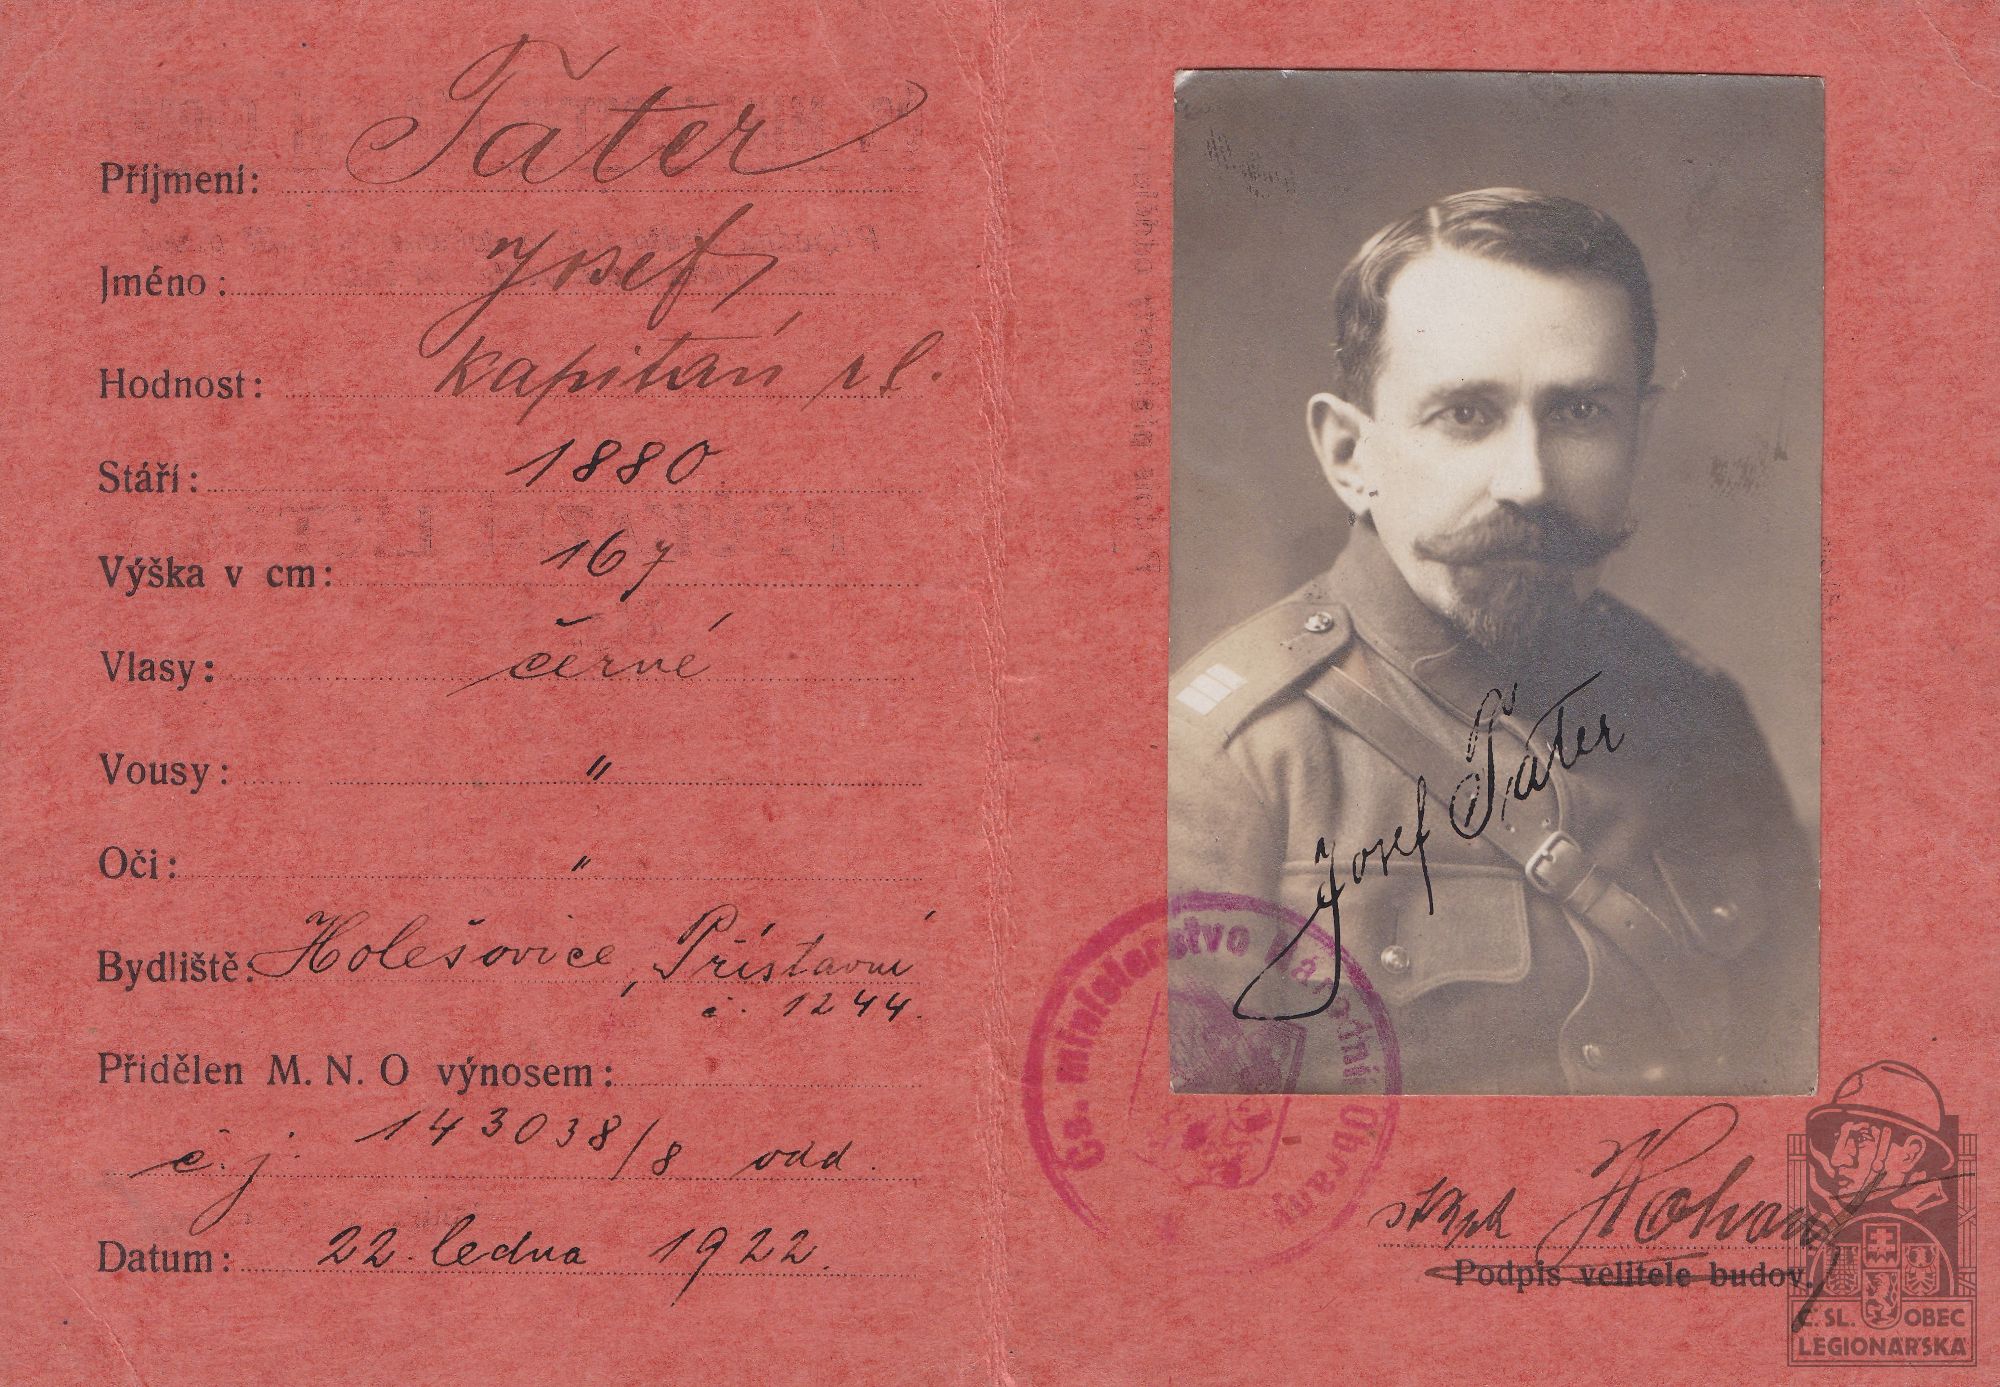 Příjmení: Táter
Jméno: Josef
Hodnost: kapitán
Stáří: 1880
Výška v cm: 167
Vlasy: černé
Vousy: "
Oči: "
Bydliště: Holešovice, Přístavní
č. 1244.
Přidělen M. N. O výnosem:
č. j. 143038/8 odd.
Datum: 22. ledna 1922.
Josef Táter
Čs. Ministerstvo Národní Obrany
škpt
Podpis velitele budov.
Č. SL. OBEC
LEGIONÁŘSKÁ